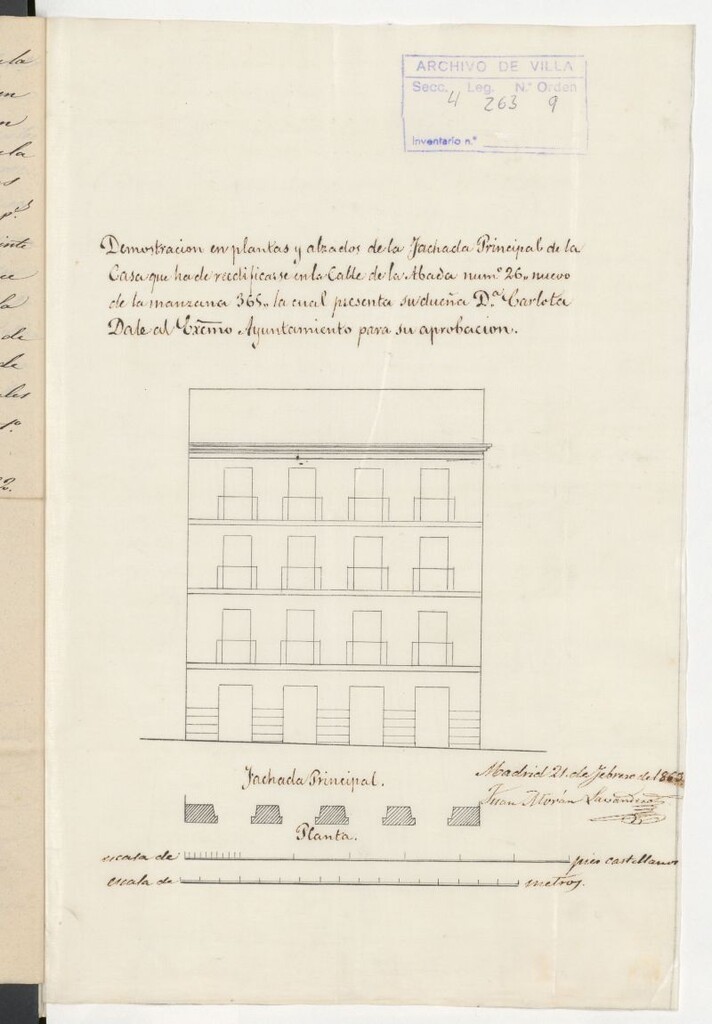 ARCHIVO DE VILLA
Secc. Leg. N.º Orden
4 263 9
Inventario n.º
Demostracion en plantas y alzados de la Fachada Principal de la
Casa que ha de reedificarse en la Calle de la Abada num.º 26,, nuevo
de la manzana 365,, la cual presenta su dueña D.ª Carlota
Dale al Excmo Ayuntamiento para su aprobacion.
Fachada Principal.
Madrid 21. de Febrero de
Juan Morán Lavandera
Planta.
escala de pies castellanos
escala de metros.
la
en
n
la
s
p.s
inte
ce
la
de
de
les